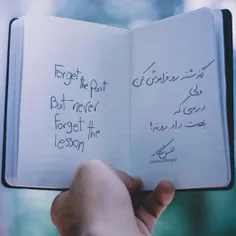 Forget
the Past
But never
Forget the
lesson
گذشته رو فراموش کن
ولی
درسی که
بهت داد رو نه!